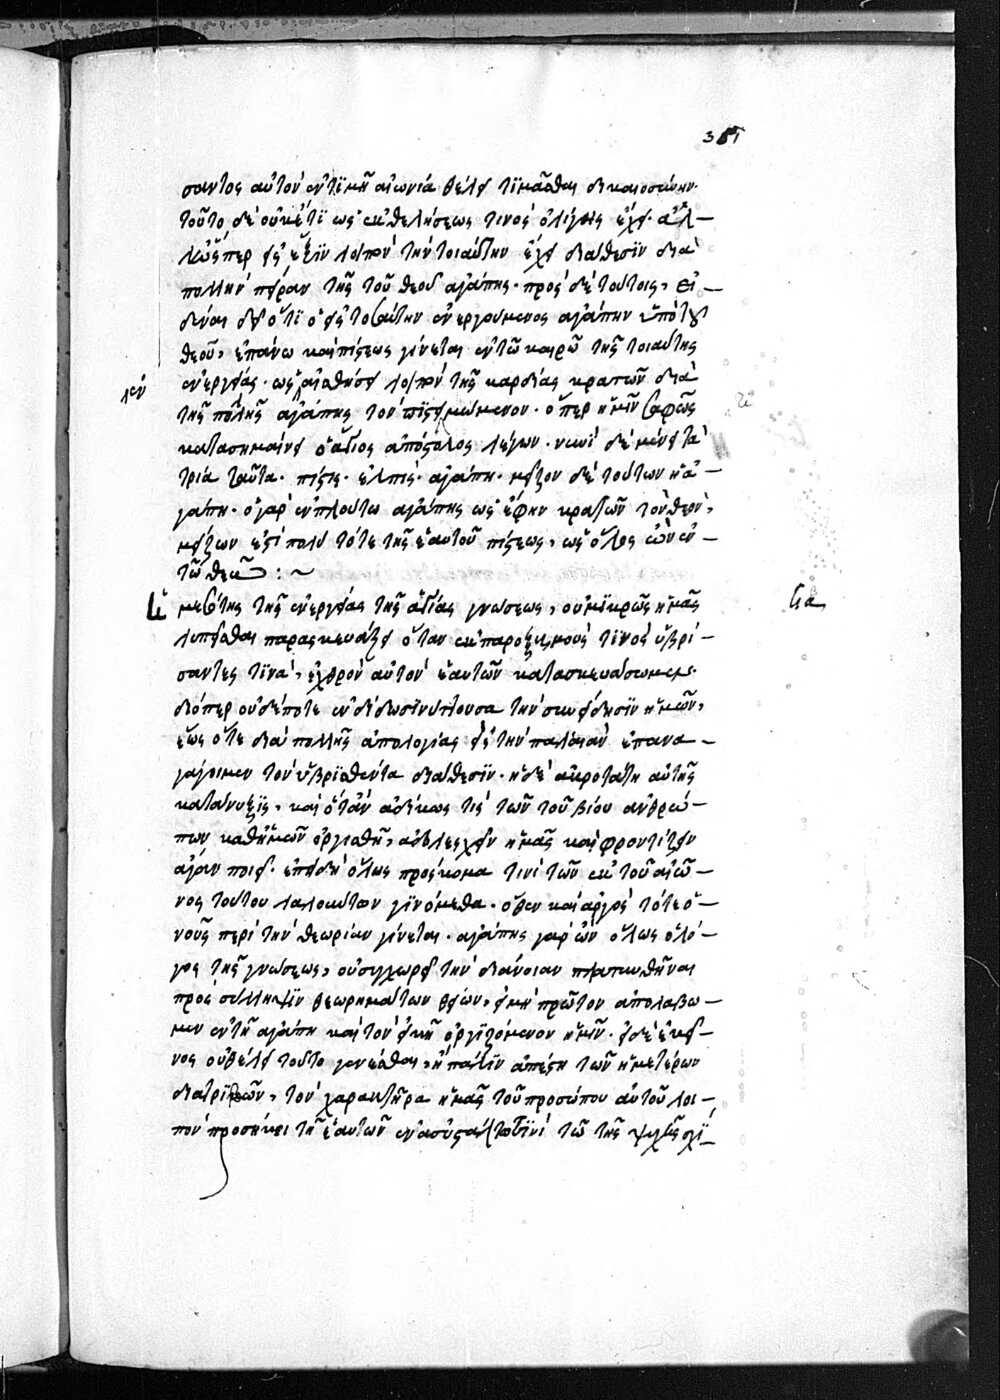 σαντος αὐτὸν ἐν τιμῇ αἰωνία θέλει τιμᾶσθαι δικαιοσύνην·
τοῦτο δὲ οὐκέτι ὡς ἐκ θελήσεως τινὸς ὀλίγης ἔχει· ἀλ-
λ' ὥσπερ εἰς ἕξιν λοιπὸν τὴν τοιαύτην ἔχει διάθεσιν διὰ
πολλὴν πεῖραν τῆς τοῦ θεοῦ ἀγάπης· πρὸς δὲ τούτοις, εἰ-
δέναι δεῖ ὅτι ὁ εἰς τοσαύτην ἐνεργούμενος ἀγάπην ὑπὸ τοῦ
θεοῦ, ἐπάνω καὶ πίστεως γίνεται ἐν τῷ καιρῷ τῆς τοιαύτης
ἐνεργείας· ὡς αἰσθήσει λοιπὸν τῆς καρδίας κρατῶν διὰ
τῆς πολλῆς ἀγάπης τὸν πιστούμενον· ὅπερ ἡμῖν σαφῶς
κατασημαίνει ὁ ἅγιος ἀπόστολος λέγων· νυνὶ δὲ μένει τὰ
τρία ταῦτα· πίστις· ἐλπὶς· ἀγάπη· μεῖζον δὲ τούτων ἡ ἀ-
γάπη· ὁ γὰρ ἐν πλούτω ἀγάπης ὡς ἔφην κρατῶν τὸν θεὸν,
μείζων ἐστὶ πολὺ τότε τῆς ἑαυτοῦ πίστεως, ὡς ὅλος ὢν ἐν
τῷ θεῷ : ~
μεσότης τῆς ἐνεργείας τῆς ἁγίας γνώσεως, οὐ μικρῶς ἡμᾶς
λυπεῖσθαι παρασκευάζει ὅταν ἐκ παροξυσμοῦς τινὸς ὑβρί-
σαντες τινὰ, ἐχθρὸν αὐτὸν ἑαυτῶν κατασκευάσωμεν·
διόπερ οὐδέποτε ἐνδίδωσι νύττουσα τὴν συνείδησιν ἡμῶν,
ἕως ὅτε διὰ πολλῆς ἀπολογίας εἰς τὴν παλαιὰν ἐπανα-
γάγοιμεν τὸν ὑβρισθέντα διάθεσιν· ἡ δὲ ἀκροτάτη αὐτῆς
κατάνυξις, καὶ ὅταν ἀδίκως τις τῶν τοῦ βίου ἀνθρώ-
πων καθ' ἡμῶν ὀργισθῆ, ἀδολεσχεῖν ἡμᾶς καὶ φροντίζειν
ἄγαν ποιεῖ· ἐπειδὴ ὅλως πρόσκομα τινὶ τῶν ἐκ τοῦ αἰῶ-
νος τούτου λαλούντων γινόμεθα· ὅθεν καὶ ἀργὸς τότε ὁ
νοῦς περὶ τὴν θεωρίαν γίνεται· ἀγάπης γὰρ ὢν ὅλως ὁ λό-
γος τῆς γνώσεως, οὐ συγχωρεῖ τὴν διάνοιαν πλατυνθῆναι
πρὸς σύλληψιν θεωρημάτων θείων, εἰ μὴ πρῶτον ἀπολάβω-
μεν ἐν τῇ ἀγάπη καὶ τὸν εἰκῇ ὀργιζόμενον ἡμῖν· εἰ δὲ ἐκεῖ-
νος οὐ θέλει τοῦτο γενέσθαι, ἢ πάλιν ἀπέστη τῶν ἡμετέρων
διατριβῶν, τὸν χαρακτῆρα ἡμᾶς τοῦ προσώπου αὐτοῦ λοι-
πὸν προσήκει τῇ ἑαυτῶν τῷ τῆς ψυχῆς